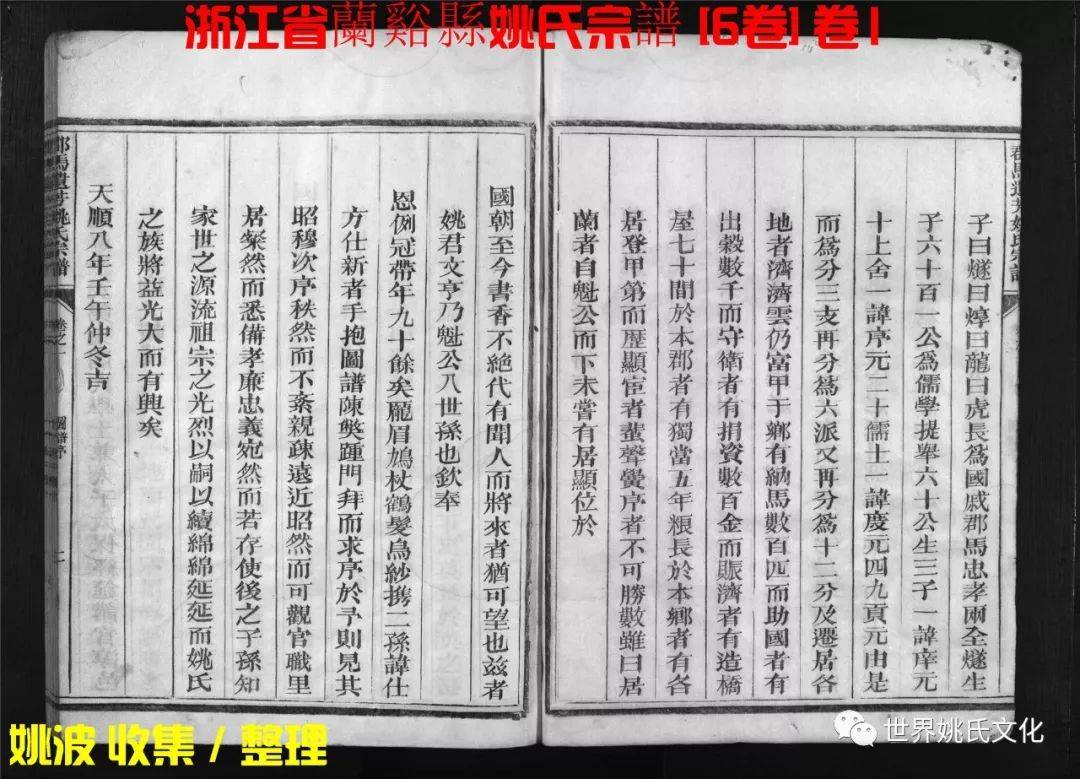 浙江省蘭谿縣姚氏宗譜 [6卷] 卷1
子曰燧曰焞曰龍曰虎長爲國戚郡馬忠孝兩全燧生
子六十百一公爲儒學提舉六十公生三子一諱庠元
十上舍一諱序元二十儒士一諱慶元四九貢元由是
而爲分三支再分爲六派又再分爲十二分及遷居各
地者濟濟雲仍富甲于鄉有納馬數百匹而助國者有
出穀數千而守衛者有捐資數百金而賑濟者有造橋
屋七十間於本郡者有獨當五年粮長於本鄉者有各
居登甲第而歷顯宦者蜚聲黌序者不可勝數雖曰居
蘭者自魁公而下未嘗有居顯位於
國朝至今書香不絕代有聞人而將來者猶可望也茲者
姚君文亨乃魁公八世孫也欽奉
恩例冠帶年九十餘矣龎眉鳩杖鶴髮烏紗携二孫諱仕
方仕新者手抱圖譜陳樊踵門拜而求序於予則見其
昭穆次序秩然而不紊親疎遠近昭然而可觀官職里
居粲然而悉備孝廉忠義宛然而若存使後之子孫知
家世之源流祖宗之光烈以嗣以續綿綿延延而姚氏
之族將益光大而有興矣
天順八年壬午仲冬吉
郡馬遺芳姚氏宗譜
卷之一
圖譜序
二
姚波 收集 / 整理
世界姚氏文化